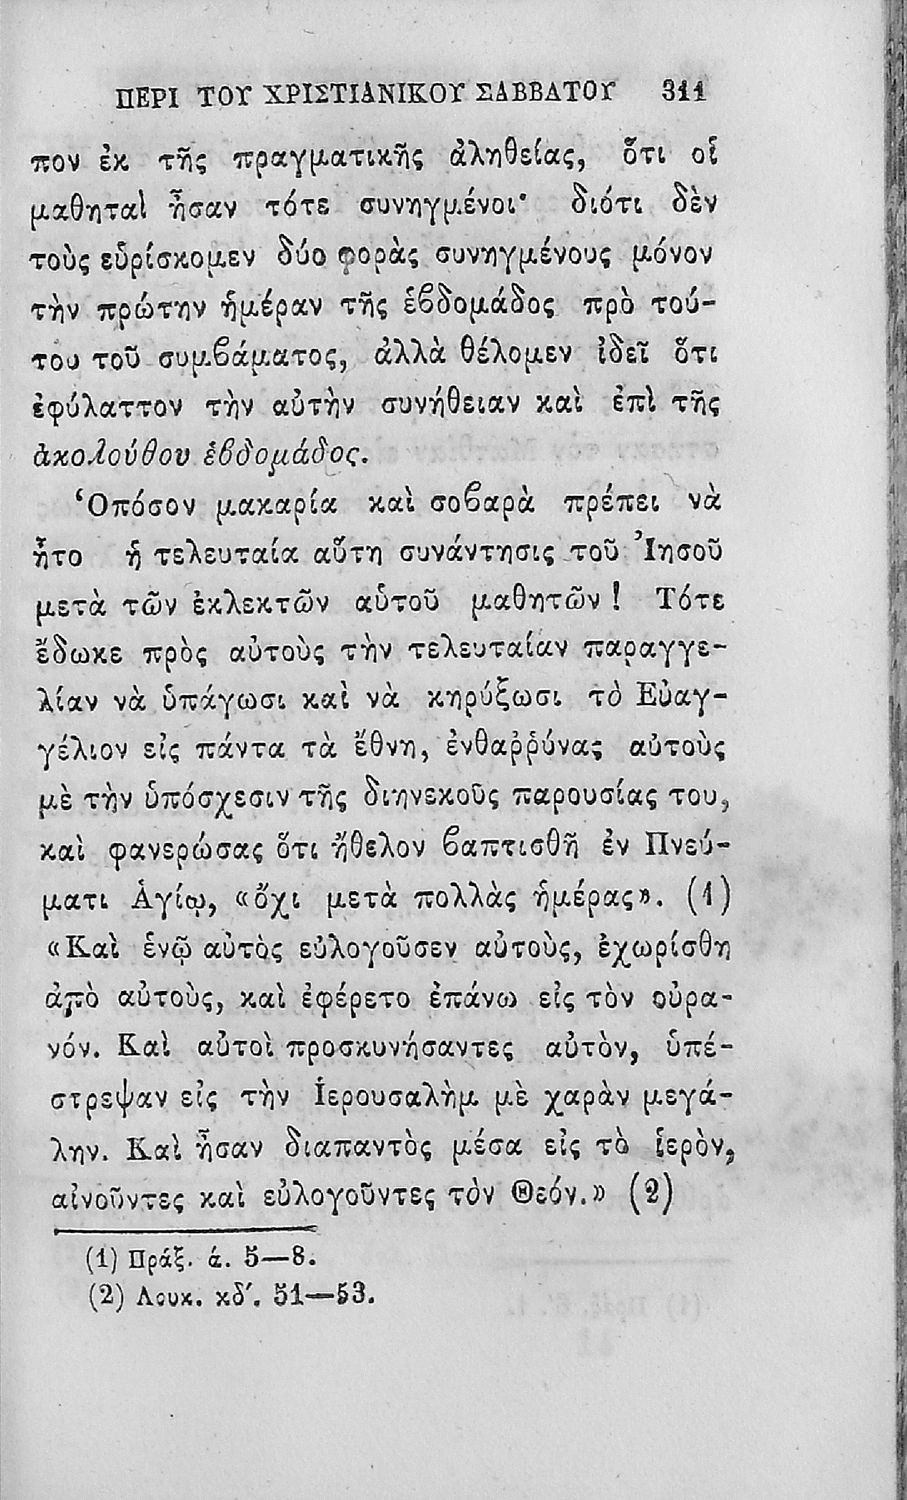 ΠΕΡΙ ΤΟΥ ΧΡΙΣΤΙΑΝΙΚΟΥ ΣΑΒΒΑΤΟΥ 311
πον ἐκ τῆς πραγματικῆς ἀληθείας, ὅτι οἱ
μαθηταὶ ἦσαν τότε συνηγμένοι· διότι δὲν
τοὺς εὑρίσκομεν δύο φορὰς συνηγμένους μόνον
τὴν πρώτην ἡμέραν τῆς ἑβδομάδος πρὸ τού-
του τοῦ συμβάματος, ἀλλὰ θέλομεν ἰδεῖ ὅτι
ἐφύλαττον τὴν αὐτὴν συνήθειαν καὶ ἐπὶ τῆς
ἀκολούθου ἑβδομάδος.
Ὁπόσον μακαρία καὶ σοβαρὰ πρέπει νὰ
ἦτο ἡ τελευταία αὕτη συνάντησις τοῦ Ἰησοῦ
μετὰ τῶν ἐκλεκτῶν αὑτοῦ μαθητῶν! Τότε
ἔδωκε πρὸς αὐτοὺς τὴν τελευταίαν παραγγε-
λίαν νὰ ὑπάγωσι καὶ νὰ κηρύξωσι τὸ Εὐαγ-
γέλιον εἰς πάντα τὰ ἔθνη, ἐνθαῤῥύνας αὐτοὺς
μὲ τὴν ὑπόσχεσιν τῆς διηνεκοῦς παρουσίας του,
καὶ φανερώσας ὅτι ἤθελον βαπτισθῆ ἐν Πνεύ-
ματι Ἁγίῳ, «ὄχι μετὰ πολλὰς ἡμέρας». (1)
«Καὶ ἐνῷ αὐτὸς εὐλογοῦσεν αὐτοὺς, ἐχωρίσθη
ἀπὸ αὐτοὺς, καὶ ἐφέρετο ἐπάνω εἰς τὸν οὐρα-
νόν. Καὶ αὐτοὶ προσκυνήσαντες αὐτὸν, ὑπέ-
στρεψαν εἰς τὴν Ἱερουσαλὴμ μὲ χαρὰν μεγά-
λην. Καὶ ἦσαν διαπαντὸς μέσα εἰς τὸ ἱερὸν,
αἰνοῦντες καὶ εὐλογοῦντες τὸν Θεόν.» (2)
(1) Πράξ. ά. 5—8.
(2) Λουκ. κδ΄. 51—53.